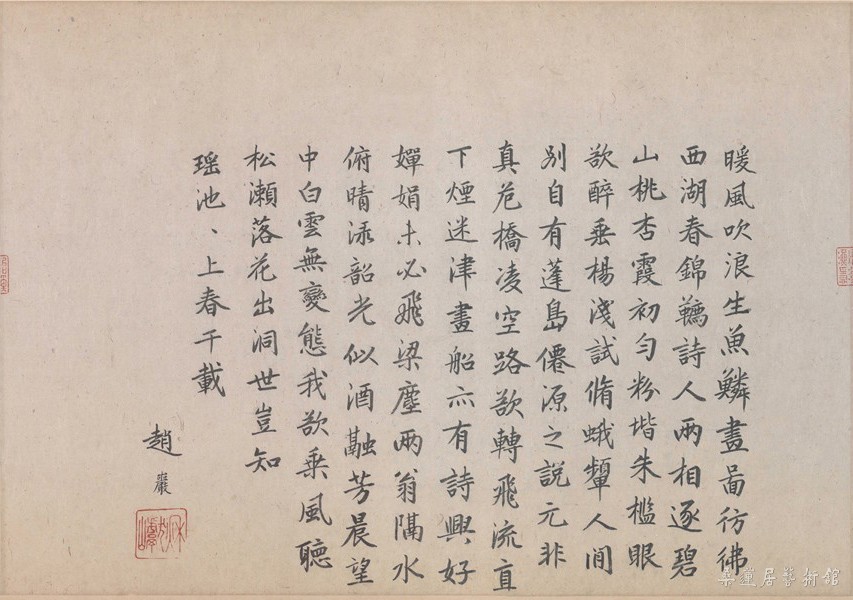 暖風吹浪生魚鱗畫啚彷彿
西湖春錦韉詩人兩相逐碧
山桃杏霞初勻粉堦朱檻眼
欲醉垂楊淺試脩蛾顰人間
別自有蓬島僊源之說元非
真危橋凌空路欲轉飛流直
下煙迷津畫船亦有詩興好
嬋娟未必飛梁塵兩翁隔水
俯晴淥韶光似酒融芳晨望
中白雲無變態我欲乘風聽
松瀨落花出洞世豈知
瑶池、上春千載
趙巖
桑蓮居藝術館